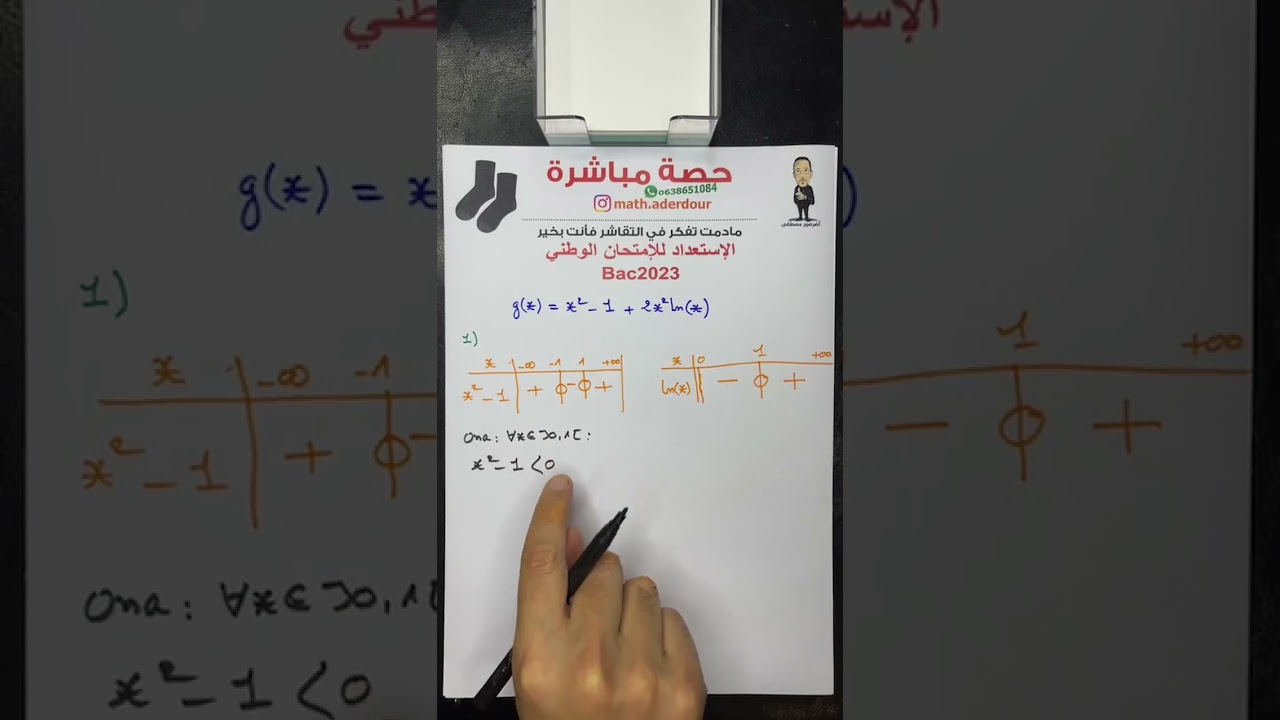 حصة مباشرة
0638651084
math.aderdour
أضرضور مصطفى
مادمت تفكر في التقاشر فأنت بخير
الإستعداد للإمتحان الوطني
Bac2023
g(x) = x² - 1 + 2x² ln(x)
1)
x | -∞ -1 1 +∞
x² - 1 | + 0 - 0 +
x | 0 1 +∞
ln(x) || - 0 +
Ona : ∀x ∈ ]0, 1[ :
x² - 1 < 0